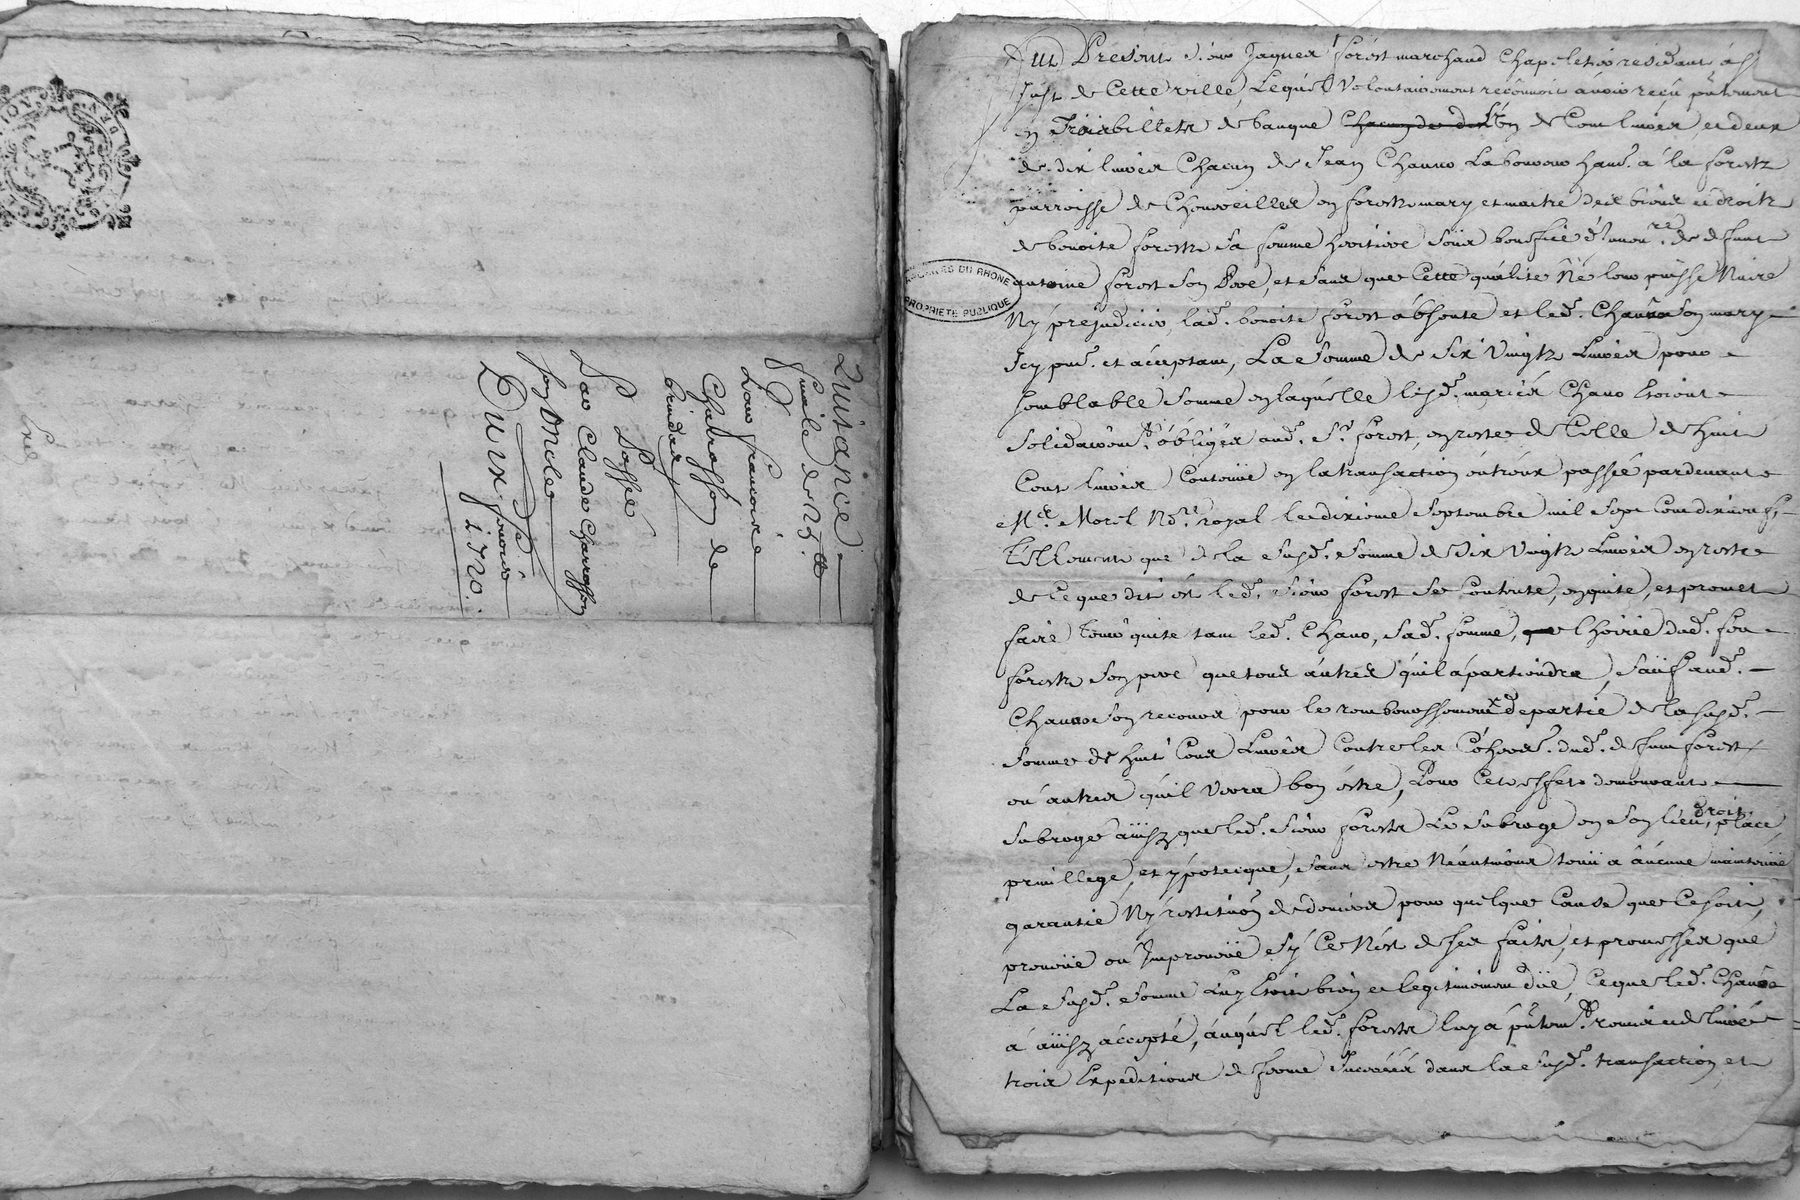 Quitance
finale de 125 ₶
P
Louis francoise
Charassson de
brindas
P Passée
Par Claude Charasson
son Oncle
Du ix fevrier
1720.
ARCHIVES DU RHONE
PROPRIETE PUBLIQUE
fut Present Sieur Jaques forest marchand Chapelier residant à St
Just de Cette ville, Lequel Volontairement reconnoit avoir reçu pñtement
en Trois billets de banque un de Cent livres, et deux
de dix livres Chacun de Jean Chanve Laboureur habt. à la forest
parroisse de en forest mary et maitre des biens et droits
de benoite forest sa femme heritiere sous benefice d'invenre. de defunt
antoine forest son Pere, et sans que Cette qualité Ne leur puisse Nuire
Ny prejudicier, lad. benoite forest absente et led. Chanve son mary
Icy pnt. et acceptant, La Somme de Six Vingts Livres pour
Semblable Somme en laquelle lesd. mariés Chanve Etoient
Solidairemt. obligés aud. Sr. forest, en reste de Celle de huit
Cent livres Contenue en la transaction entreux passée pardevant
Me. Morel Nore. royal le dixieme Septembre mil Sept Cent dixneuf,
Tellement que de la Susd. Somme de Six Vingts Livres en reste
de Ce que dit est led. Sieur forest Se Contente, en quite, et promet
faire Tenir quite tant led. Chanve, Sad. femme, Lhoirie dud. feu
forest Son pere que tous autres qu'il apartiendra, Sauf aud.
Chanve Son recours pour le rembourssement de partie de la Susd.
Somme de huit Cens Livres Contre les Coherrs. dud. defunt forest
ou autres qu'il Verra bon être, Pour Cet effet demeurant
Subrogé ainsy que led. Sieur forest Le Subroge en Son lieu, droit, place,
privillege, et ypoteque, Sans estre Néantmoins tenu a aucune maintenüe
garantie Ny restitu͠on de deniers pour quelque Cause que Ce Soit,
prevüe ou Imprevüe Sy Ce N'est de Ses faits, et promesses que
La Susd. Somme Luy Etoit bien et legitimement düe, Ce que led. Chanve
a ainsy accepté, auquel led. forest luy a pñtemt. remis et delivré
trois Expeditions de forme Inserées dans la Susd. transaction et